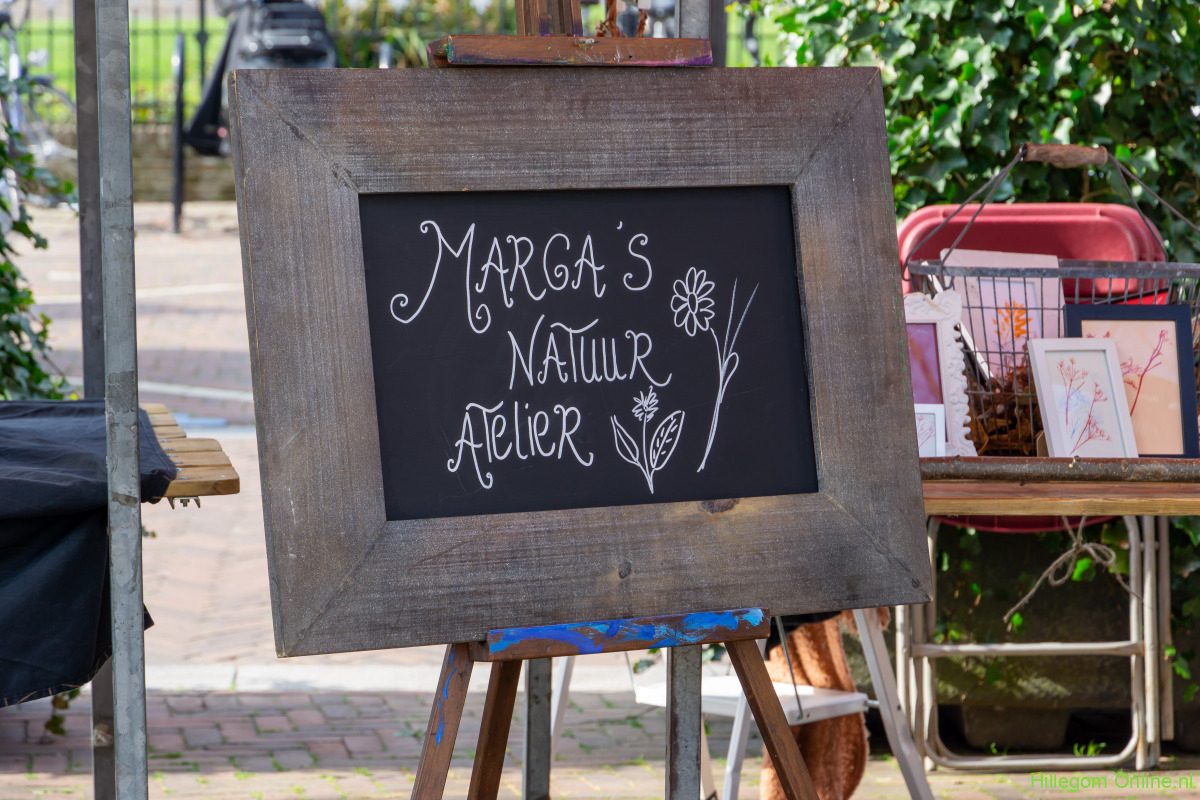 MARGA'S
NATUUR
ATELIER
Hillegom Online.nl